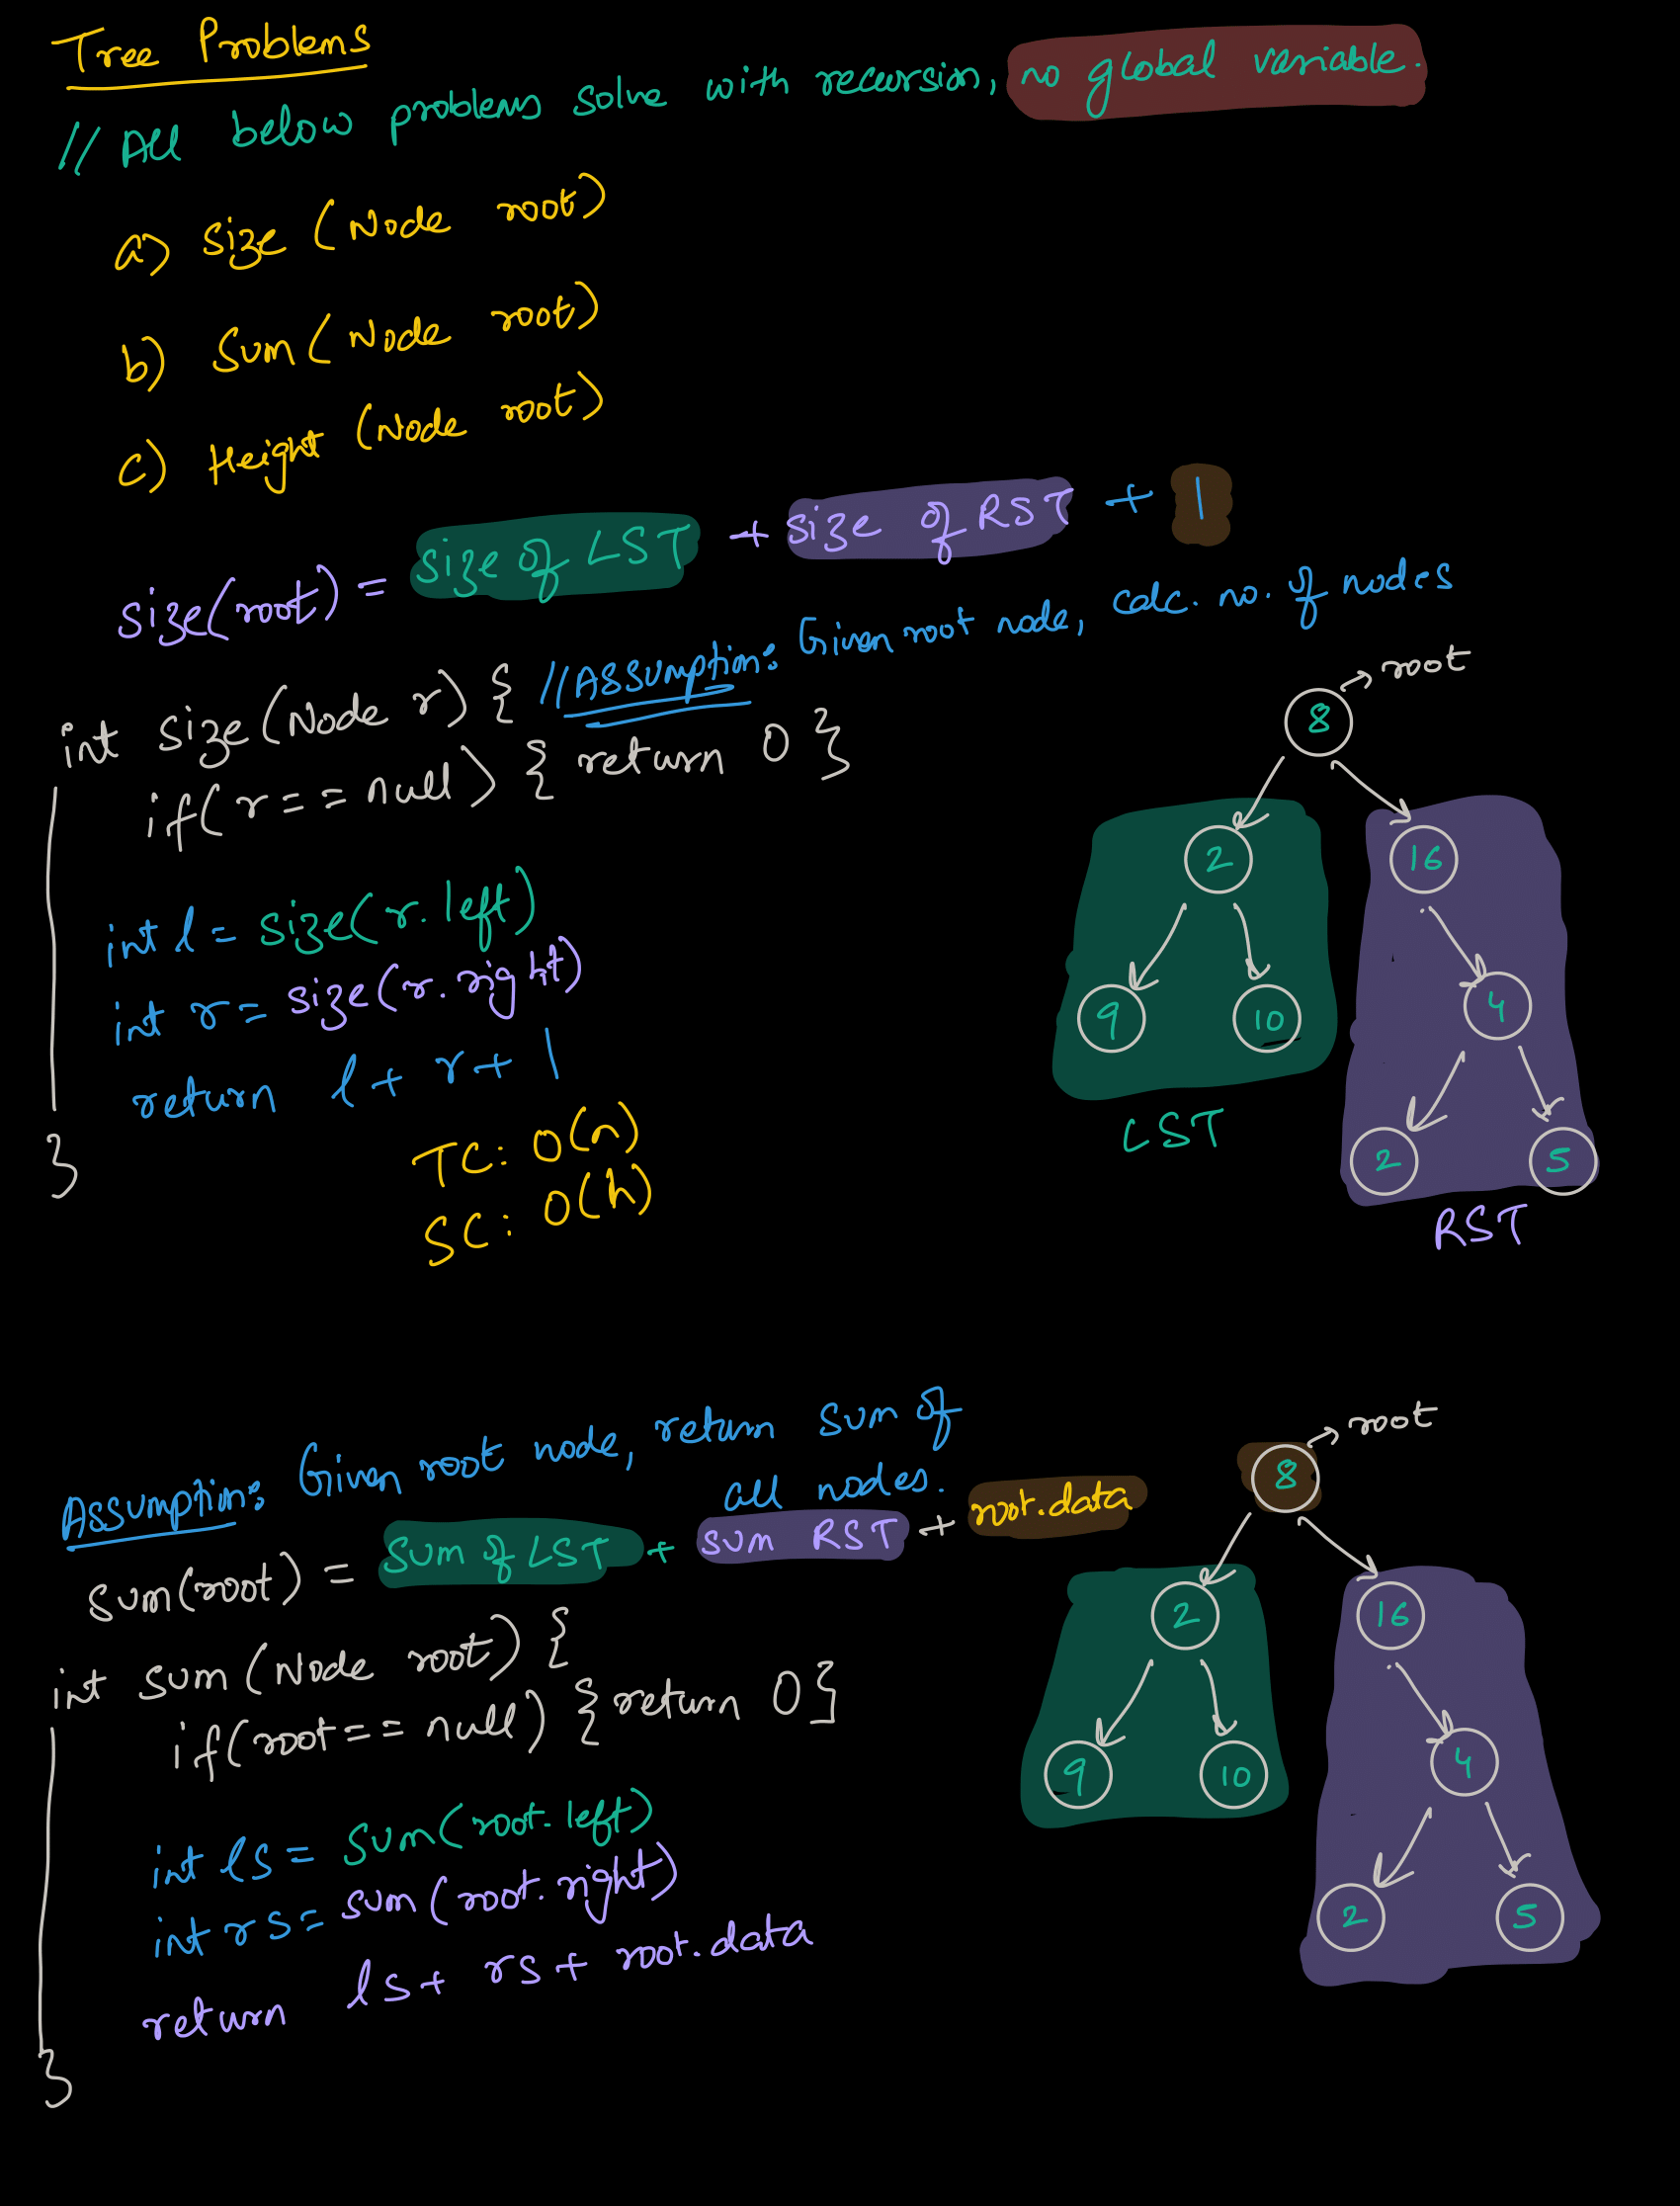 Tree Problems
// All below problems solve with recursion, no global variable.
a) size (Node root)
b) Sum (Node root)
c) Height (Node root)
size(root) = size of LST + size of RST + 1
int size(Node r) { //Assumption: Given root node, calc. no. of nodes
if(r == null) { return 0 }
int l = size(r.left)
int r = size(r.right)
return l + r + 1
}
TC: O(n)
SC: O(h)
root
8
2
16
9
10
4
2
5
LST
RST
Assumption: Given root node, return sum of
all nodes.
sum(root) = sum of LST + sum RST + root.data
int sum (Node root) {
if(root == null) { return 0 }
int ls = sum(root.left)
int rs = sum(root.right)
return ls + rs + root.data
}
root
8
2
16
9
10
4
2
5